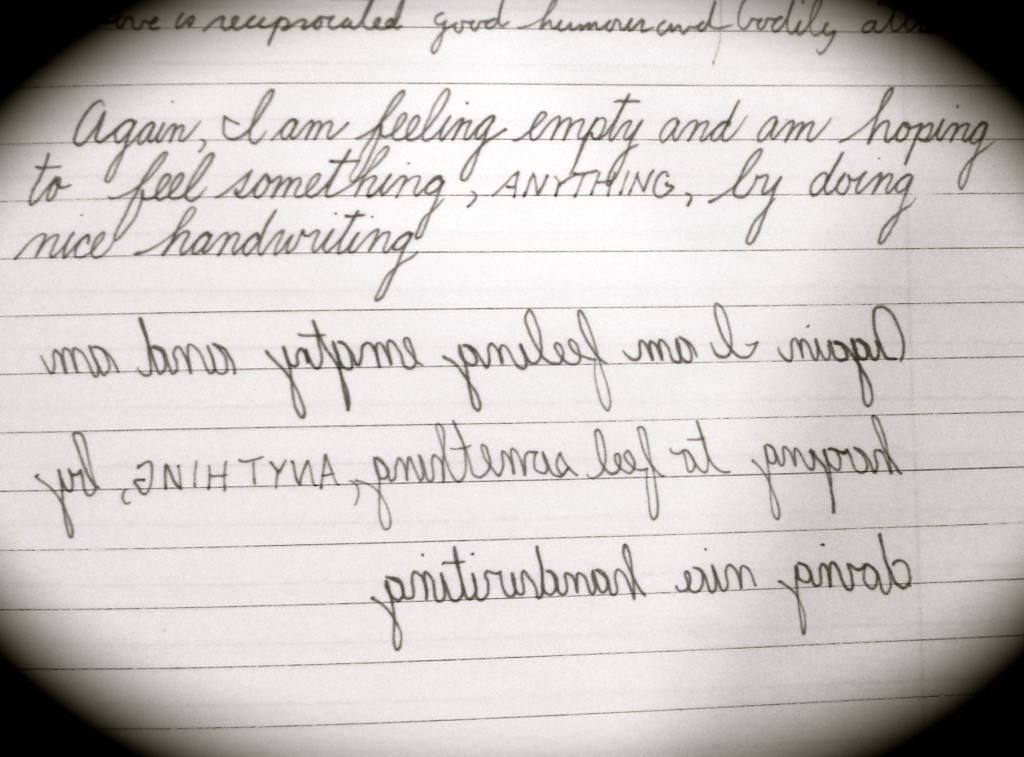 is reciprocated good humour and bodily
Again, I am feeling empty and am hoping
to feel something, ANYTHING, by doing
nice handwriting
Again I am feeling empty and am
hoping to feel something, ANYTHING, by
doing nice handwriting